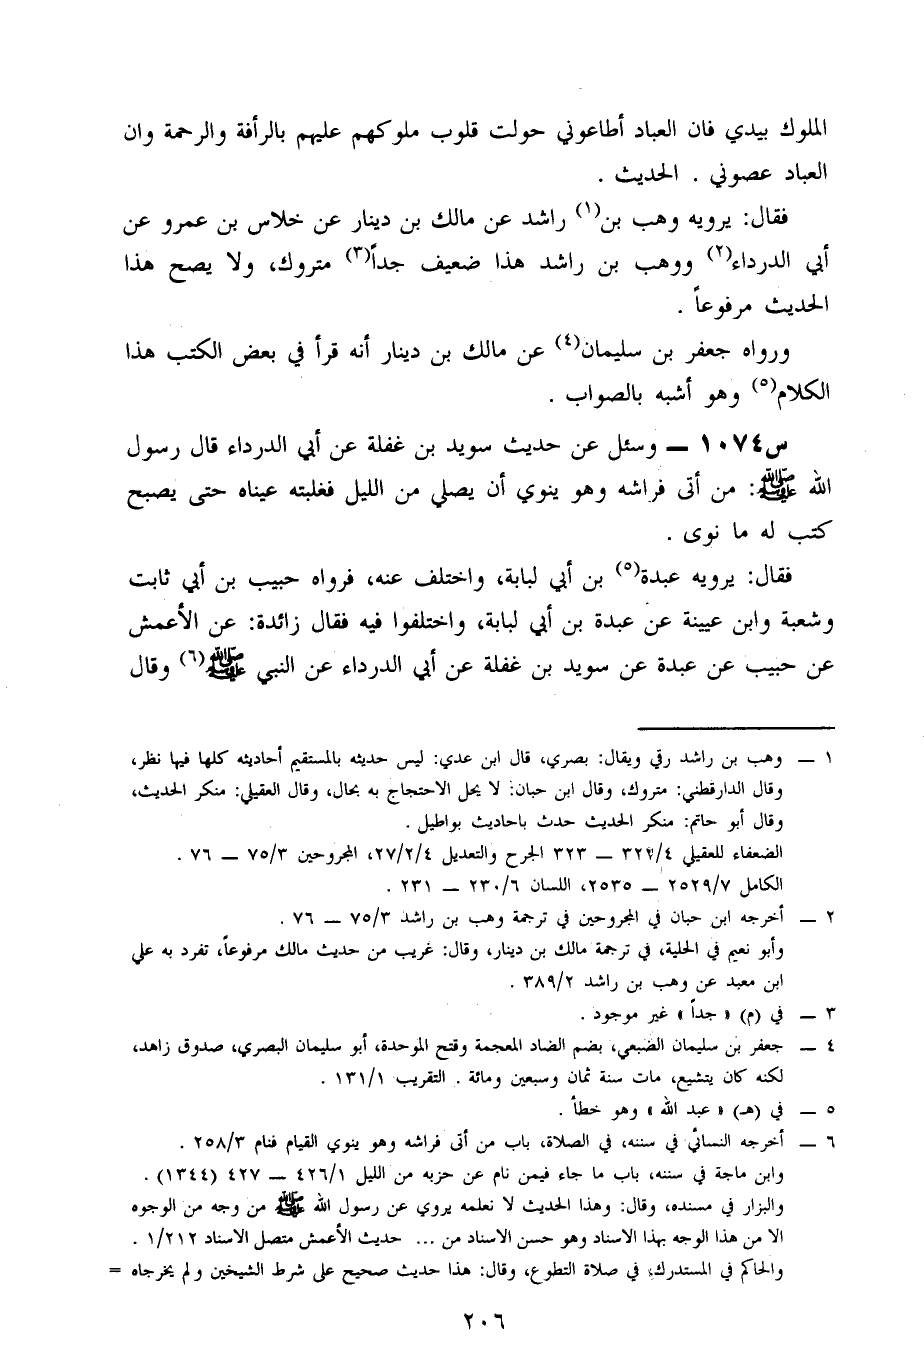 الملوك بيدي فان العباد أطاعوني حولت قلوب ملوكهم عليهم بالرأفة والرحمة وان
العباد عصوني . الحديث .
فقال: يرويه وهب بن(١) راشد عن مالك بن دينار عن خلاس بن عمرو عن
أبي الدرداء(٢) ووهب بن راشد هذا ضعيف جداً(٣) متروك، ولا يصح هذا
الحديث مرفوعاً .
ورواه جعفر بن سليمان(٤) عن مالك بن دينار أنه قرأ في بعض الكتب هذا
الكلام(٥) وهو أشبه بالصواب .
س١٠٧٤ ــ وسئل عن حديث سويد بن غفلة عن أبي الدرداء قال رسول
الله ﷺ: من أتى فراشه وهو ينوي أن يصلي من الليل فغلبته عيناه حتى يصبح
كتب له ما نوى .
فقال: يرويه عبدة(٥) بن أبي لبابة، واختلف عنه، فرواه حبيب بن أبي ثابت
وشعبة وابن عيينة عن عبدة بن أبي لبابة، واختلفوا فيه فقال زائدة: عن الأعمش
عن حبيب عن عبدة عن سويد بن غفلة عن أبي الدرداء عن النبي ﷺ(٦) وقال
١ ــ وهب بن راشد رقي ويقال: بصري، قال ابن عدي: ليس حديثه بالمستقيم أحاديثه كلها فيها نظر،
وقال الدارقطني: متروك، وقال ابن حبان: لا يحل الاحتجاج به بحال، وقال العقيلي: منكر الحديث،
وقال أبو حاتم: منكر الحديث حدث باحاديث بواطيل .
الضعفاء للعقيلي ٣٢٢/٤ ــ ٣٢٣ الجرح والتعديل ٢٧/٢/٤، المجروحين ٧٥/٣ ــ ٧٦ .
الكامل ٢٥٢٩/٧ ــ ٢٥٣٥، اللسان ٢٣٠/٦ ــ ٢٣١ .
٢ ــ أخرجه ابن حبان في المجروحين في ترجمة وهب بن راشد ٧٥/٣ ــ ٧٦ .
وأبو نعيم في الحلية، في ترجمة مالك بن دينار، وقال: غريب من حديث مالك مرفوعاً، تفرد به علي
ابن معبد عن وهب بن راشد ٣٨٩/٢ .
٣ ــ في (م) « جداً » غير موجود .
٤ ــ جعفر بن سليمان الضبعي، بضم الضاد المعجمة وفتح الموحدة، أبو سليمان البصري، صدوق زاهد،
لكنه كان يتشيع، مات سنة ثمان وسبعين ومائة . التقريب ١٣١/١ .
٥ ــ في (هـ) « عبد الله » وهو خطأ .
٦ ــ أخرجه النسائي في سننه، في الصلاة، باب من أتى فراشه وهو ينوي القيام فنام ٢٥٨/٣ .
وابن ماجة في سننه، باب ما جاء فيمن نام عن حزبه من الليل ٤٢٦/١ ــ ٤٢٧ (١٣٤٤) .
والبزار في مسنده، وقال: وهذا الحديث لا نعلمه يروي عن رسول الله ﷺ من وجه من الوجوه
الا من هذا الوجه بهذا الاسناد وهو حسن الاسناد من ... حديث الأعمش متصل الاسناد ١/٢١٢ .
والحاكم في المستدرك، في صلاة التطوع، وقال: هذا حديث صحيح على شرط الشيخين ولم يخرجاه =
٢٠٦